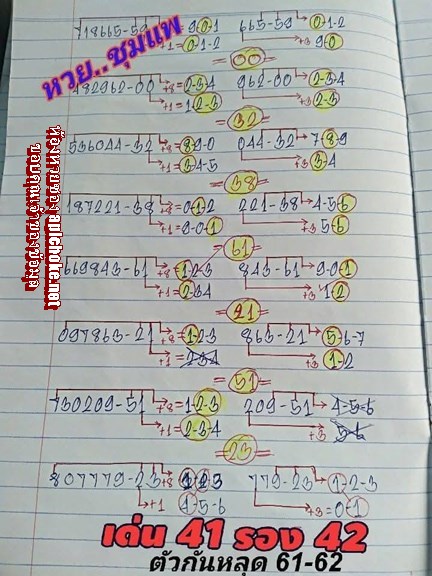 718665-59 +8= 9-0-1 665-59 0-1-2
+1=0-1-2 +3 9-0
=00=
หวย..ชุมแพ
482962-00 +8=2-3-4 962-00 2-3-4
+1=1-2-3 +3 2-3
=32=
536044-32 +8=8-9-0 044-32 7-8-9
+1=3-4-5 +3 3-4
=38=
187221-38 +8=0-1-2 221-38 4-5-6
+1=9-0-1 +3 5-6
=61=
669843-61 +8=1-2-3 843-61 9-0-1
+1=2-3-4 +3 1-2
=21=
097863-21 +8=1-2-3 863-21 5-6-7
+1=2-3-4 +3 1-2
=51=
730209-51 +8=1-2-3 209-51 4-5-6
+1=2-3-4 +3 5-6
=23=
807779-23 +8 779-23 1-2-3
+1 4-5-6 +3=0-1
เด่น 41 รอง 42
ตัวกันหลุด 61-62
ขอบคุณเจ้าของข้อมูล